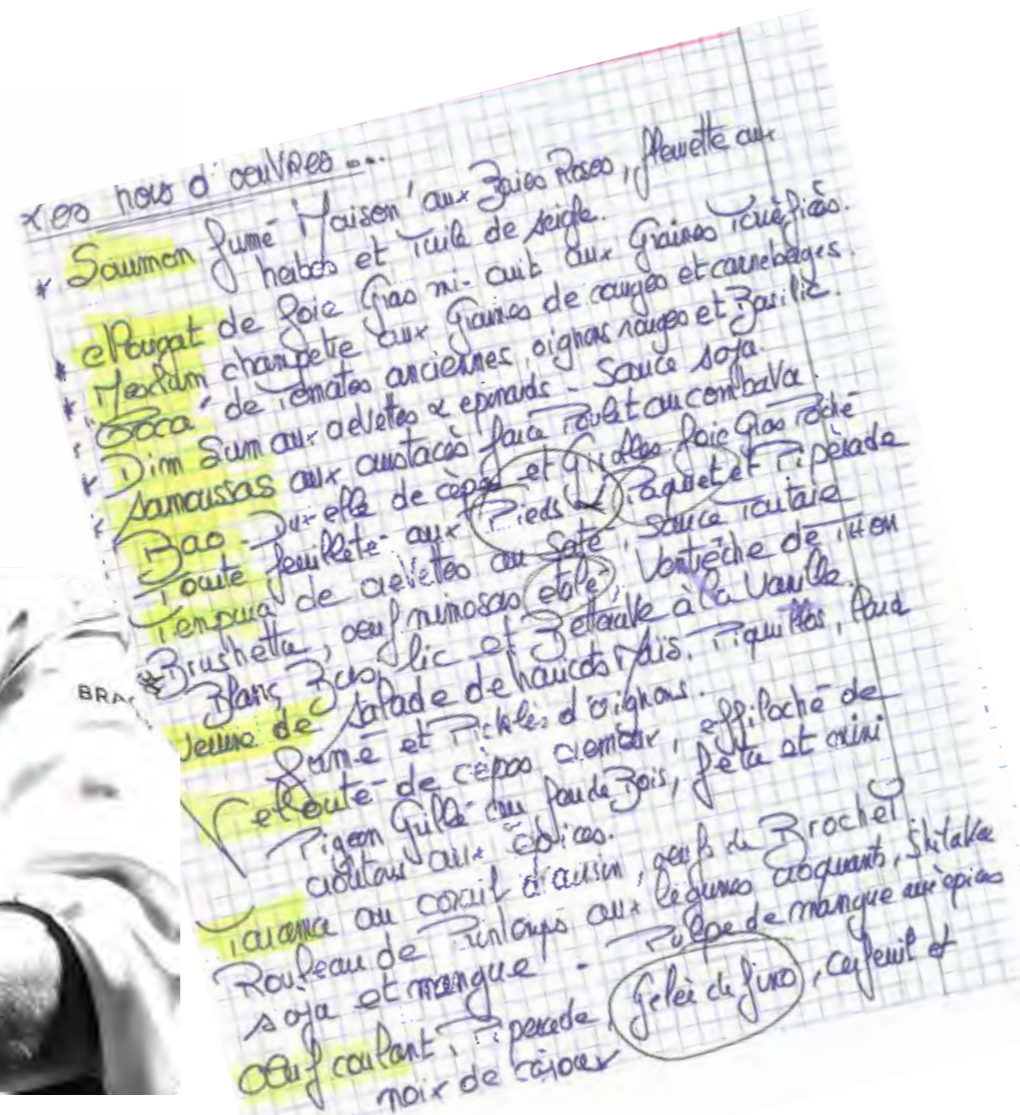 Les hors d'oeuvres ...
* Saumon fumé Maison' aux Baies Roses, fleurette aux
herbes et Tuile de seigle.
* Nougat de foie Gras mi-cuit aux Graines Torréfiées.
* Mesclum champetre aux Graines de courges et canneberges.
* "Coca" de Tomates anciennes, oignons rouges et Basilic.
* Dim Sum aux crevettes & epinards - Sauce soja.
* Samoussas aux crustacés farce Poulet au combava.
* Bao - Duxelle de cèpes et Girolles. foie Gras Poché
Tourte feuilletée aux Pieds Paquet et Piperade
Tempura de crevettes au Saté, sauce
Brushetta, oeuf mimosas Ventrèche de THON
Blanc, Basilic et Betterave à la Vanille.
Verrine de Salade de haricots Maïs. Piquillos, Lard
Fumé et Pickles d'oignons.
Velouté de cèpes crémeux, effiloché de
Pigeon Grillé au feu de Bois, feta et mini
croûtons aux épices.
Tarama au corail d'oursin, oeufs de Brochet
Rouleau de Printemps aux légumes croquants, Shitake
soja et mangue - Pulpe de mangue aux épices
Oeuf coulant, Piperade, Gelée de , cerfeuil et
noix de cajou
BRA